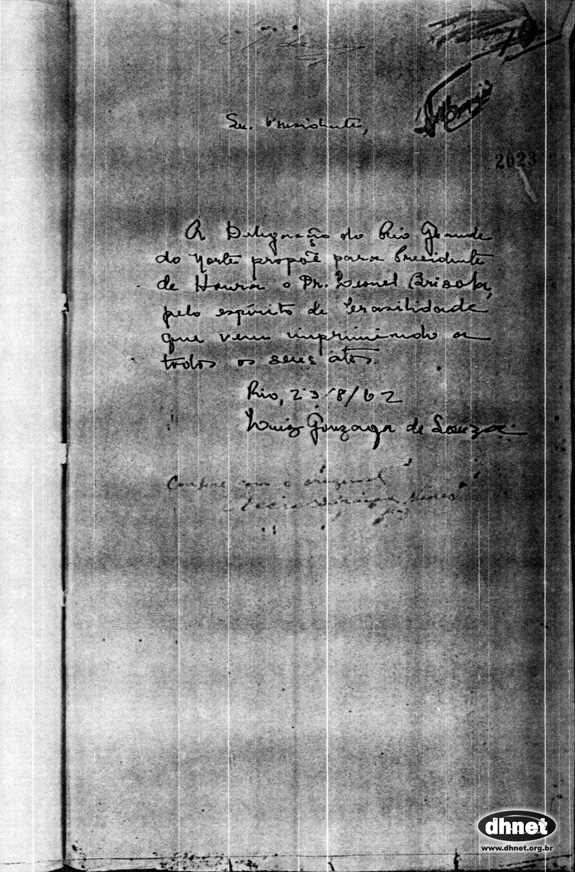 Snr. Presidente,
2023
A Delegação do Rio Grande
do Norte propõe para Presidente
de Honra o Dr. Leonel Brisola,
pelo espírito de brasilidade
que vem imprimindo a
todos os seus atos.
Rio, 23/8/62
Luiz Gonzaga de Souza.
Confere com o original
dhnet
www.dhnet.org.br